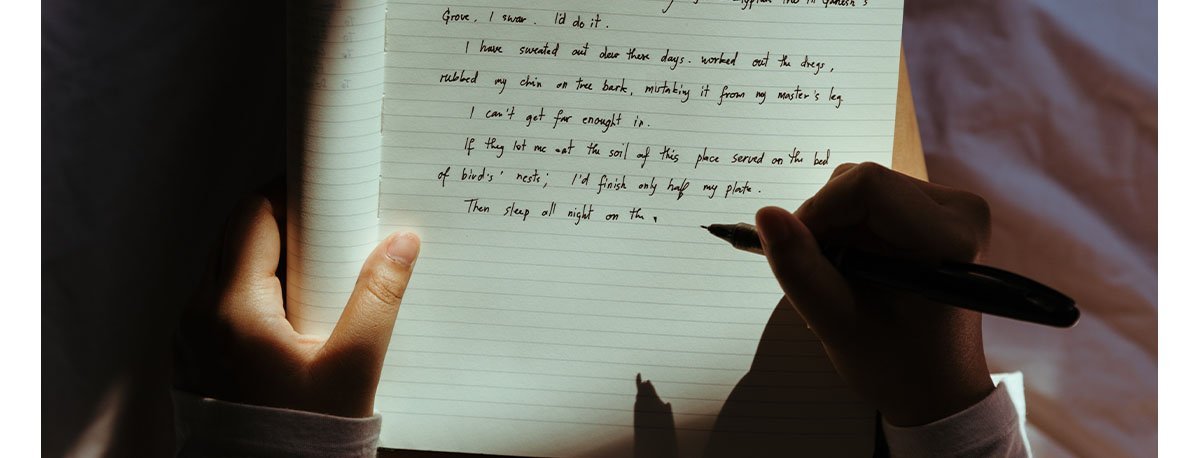 in Ganesh's
Grove, I swear. I'd do it.
I have sweated out dew these days. worked out the dregs,
rubbed my chin on tree bark, mistaking it from my master's leg
I can't get far enought in.
If they let me eat the soil of this place served on the bed
of bird's' nests; I'd finish only half my plate.
Then sleep all night on the